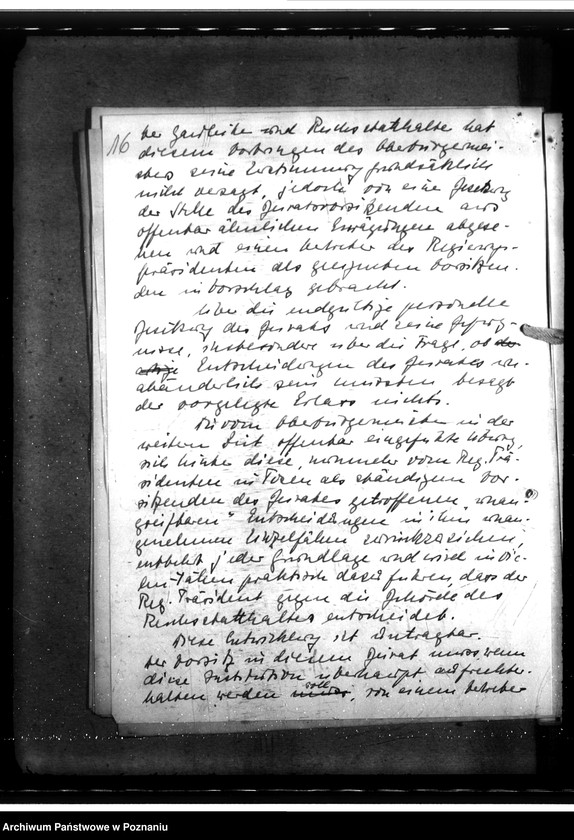 16
der Gauleiter und Reichsstatthalter hat
diesem Vorbringen des Oberbürgermei-
sters seine Zustimmung grundsätzlich
nicht versagt, jedoch von eine Besetzung
der Stelle des Beiratsvorsitzenden aus
offenbar ähnlichen Erwägungen abgese-
hen und einen Vertreter des Regierungs-
präsidenten als geeigneten Vorsitzen-
den in Vorschlag gebracht.
Über die endgültige personelle
Besetzung des Beirats und seine Befug-
nisse, insbesondere über die Frage, ob
Entscheidungen des Beirates un-
abänderlich sein müssten besagt
der vorgelegte Erlass nichts.
Die vom Oberbürgermeister in der
weiten Zeit offenbar eingeführte Übung,
sich hinter diese, nunmehr vom Reg. Prä-
sidenten in Posen als ständigen Vor-
sitzenden des Beirates getroffenen "unan-
greifbaren" Entscheidungen in ihm unan-
genehmen Einzelfällen zurückzuziehen,
entbehrt jeder Grundlage und wird in vie-
len Fällen praktisch dazu führen, dass der
Reg. Präsident gegen die Behörde des
Reichsstatthalters entscheidet.
Diese Entwicklung ist untragbar.
Der Vorsitz in diesem Beirat muss wenn
diese Institution überhaupt aufrechter-
halten werden soll, von einem Vertreter
Archiwum Państwowe w Poznaniu